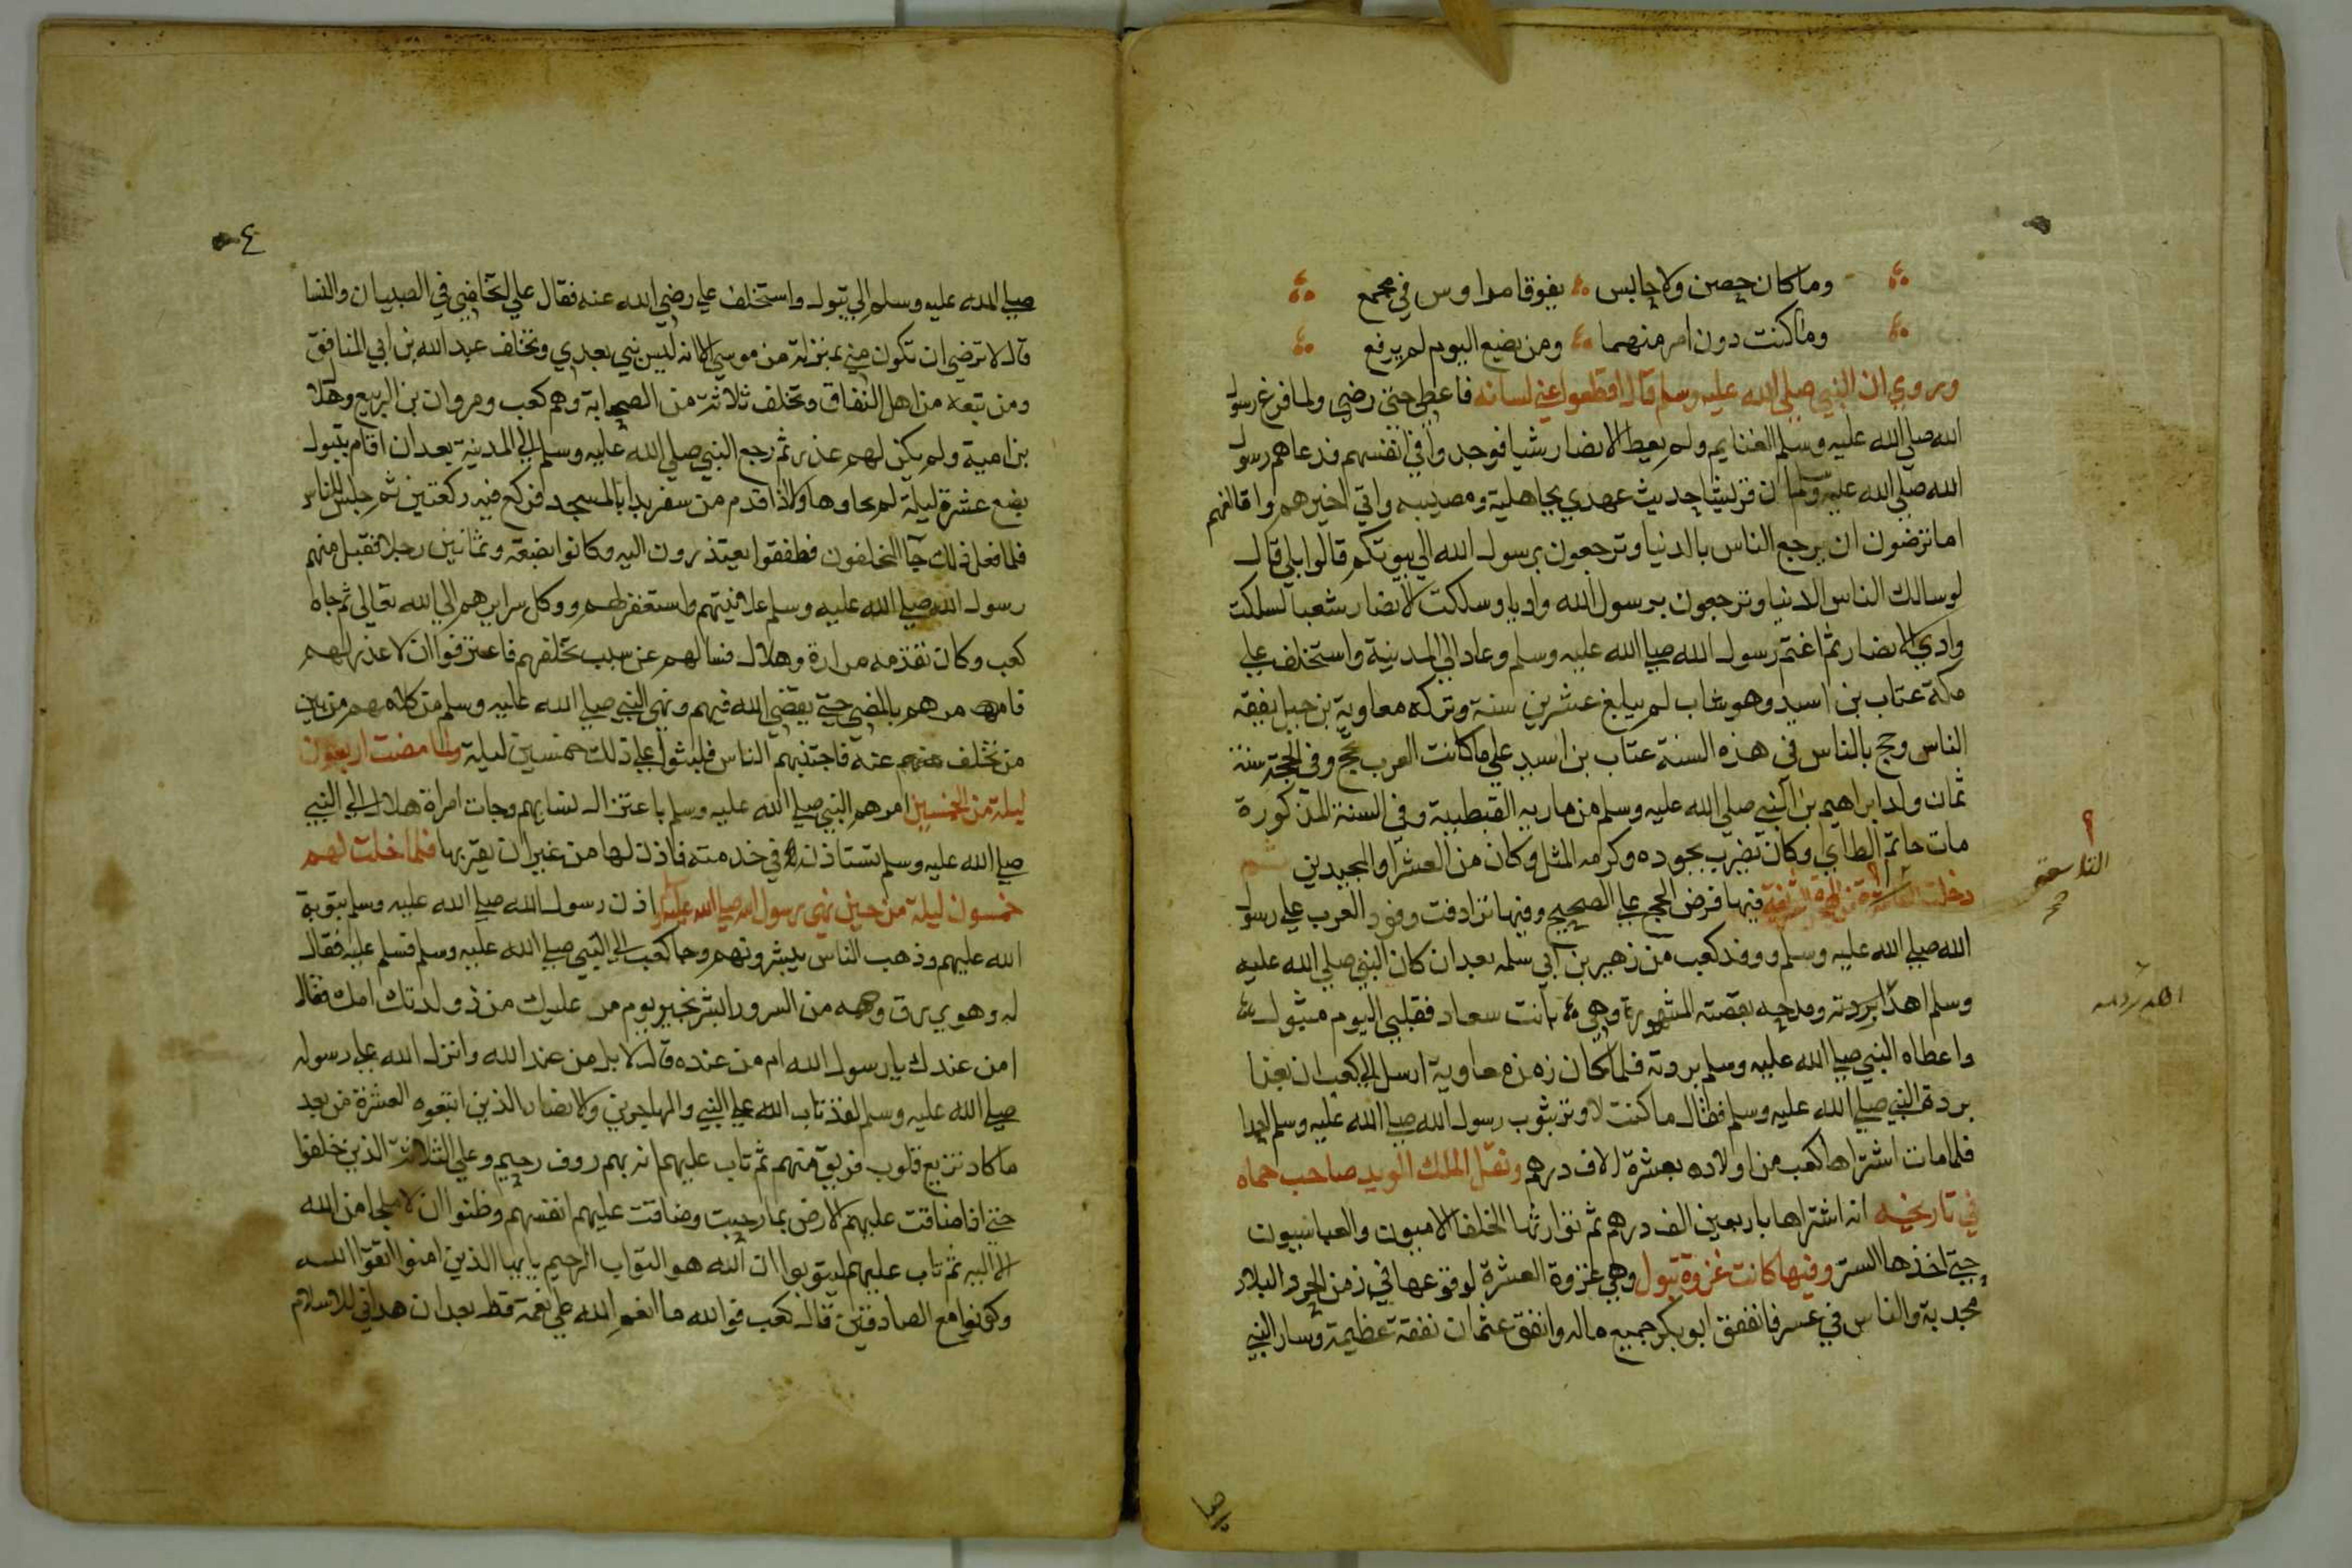 وما كان حصن ولا حابس يفوقا مداوس في مجمع
وما كنت دون امر منهما ومن يضع اليوم لم يرفع
ويروي ان النبي صلي الله عليه وسلم قال اقطعوا عني لسانه فاعطي حتي رضي ولما فرغ رسول
الله صلي الله عليه وسلم الغنايم ولم يعط الانصار شيا فوجدوا في انفسهم فدعاهم رسول
الله صلي الله عليه وسلم ان قريشا حديث عهدي بجاهلية ومصيبه واني اخيرهم واقالفهم
اما ترضون ان يرجع الناس بالدنيا وترجعون برسول الله الي بيوتكم قالوا بلي قال
لو سالك الناس الدنيا وترجعون برسول الله واديا وسلكت الانصار شعبا لسلكت
وادي الانصار ثم اغتم رسول الله صلي الله عليه وسلم وعاد الي المدينة واستخلف علي
مكة عتاب بن اسيد وهو شاب لم يبلغ عشرين سنة وتركه معاوية بن جبل يفقه
الناس وحج بالناس في هذه السنة عتاب بن اسيد علي ما كانت العرب تحج وفي الحجة سنة
ثمان ولد ابراهيم بن النبي صلي الله عليه وسلم من ماريه القبطية وفي السنة المذكورة
مات حاتم الطاي وكان يضرب بجوده وكرمه المثل وكان من الشعرا والمجيدين ثم
دخلت من الهجرة فيها فرض الحج علي الصحيح وفيها ترادفت وفود العرب علي رسول
التاسعة
صح
الله صلي الله عليه وسلم ووفد كعب من زهير بن ابي سلمه بعد ان كان النبي صلي الله عليه
وسلم اهدا بردته ومدحه بقصته المشهورة وهي بانت سعاد فقلبي اليوم متبول
واعطاه النبي صلي الله عليه وسلم بردته فلما كان زمن معاوية ارسل الي كعب ان بعنا
بردة النبي صلي الله عليه وسلم فقال ما كنت لاوثر بثوب رسول الله صلي الله عليه وسلم احدا
فلما مات اشتراها كعب من اولاده بعشرة الاف درهم ونقل الملك المويد صاحب حماه
في تاريخه انه اشتراها باربعين الف درهم ثم توارثها الخلفا الامييون والعباسيون
حتي اخذها التتر وفيها كانت غزوة تبوك وهي غزوة العشرة لوقوعها في زمن الحر والبلاد
مجدبة والناس في عسر فانفق ابو بكر جميع ماله وانفق عثمان نفقة عظيمة وسار النبي
صلي
٤
صلي الله عليه وسلم الي تبوك واستخلف علي رضي الله عنه فقال علي اتخلفني في الصبيان والنسا
قال لا ترضي ان تكون مني بمنزلة من موسي الا انه ليس نبي بعدي وتخلف عبد الله بن ابي المنافق
ومن تبعه من اهل النفاق وتخلف ثلاثة من الصحابة وهم كعب ومروان بن الربيع وهلا
بن امية ولم يكن لهم عذر ثم رجع النبي صلي الله عليه وسلم الي المدينة بعد ان اقام بتبوك
بضع عشرة ليلة لم يجاوزها ولذا قدم من سفر بدا بالمسجد فركع فيه ركعتين ثم جلس للناس
فلما فعل ذلك جآ المخلفون فطفقوا يعتذرون اليه وكانوا بضعة وثمانين رجلا فقبل منهم
رسول الله صلي الله عليه وسلم علانيتهم واستغفر لهم ووكل سرايرهم الي الله تعالي ثم جاه
كعب وكان تقدمه مرارة وهلال فسالهم عن سبب تخلفهم فاعترفوا ان لا عذر لهم
فامرهم بالمضي حتي يقضي الله فيهم ونهي النبي صلي الله عليه وسلم من كلامهم من بين
من تخلف عنه فاجتنبهم الناس فلبثوا علي ذلك خمسين ليلة ولما مضت اربعون
ليلة من الخمسين امرهم النبي صلي الله عليه وسلم باعتزال نسايهم وجات امراة هلال الي النبي
صلي الله عليه وسلم تستاذنه في خدمته فاذن لها من غير ان يقربها فلما خلت لهم
خمسون ليلة من حين نهي رسول الله صلي الله عليه وسلم اذن رسول الله صلي الله عليه وسلم بتوبة
الله عليهم وذهب الناس يبشرونهم وجا كعب الي النبي صلي الله عليه وسلم فسلم عليه فقال
له وهو يبرق وجهه من السرور ابشر بخير يوم مر عليك منذ ولدتك امك فقال
امن عندك يا رسول الله ام من عنده قال لا بل من عند الله وانزل الله علي رسوله
صلي الله عليه وسلم لقد تاب الله علي النبي والمهاجرين والانصار الذين اتبعوه العشرة من بعد
ما كاد تزيغ قلوب فريق منهم ثم تاب عليهم انه بهم روف رحيم وعلي الثلاثة الذين خلفوا
حتي اذا ضاقت عليهم الارض بما رحبت وضاقت عليهم انفسهم وظنوا ان لا ملجا من الله
الا اليه ثم تاب عليهم ليتوبوا ان الله هو التواب الرحيم يا ايها الذين امنوا اتقوا الله
وكونوا مع الصادقين قال كعب فوالله ما انعم الله علي نعمة قط بعد ان هداني للاسلام